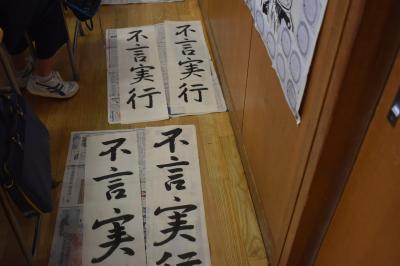 不言実行
不言実行
不言実
不言実行